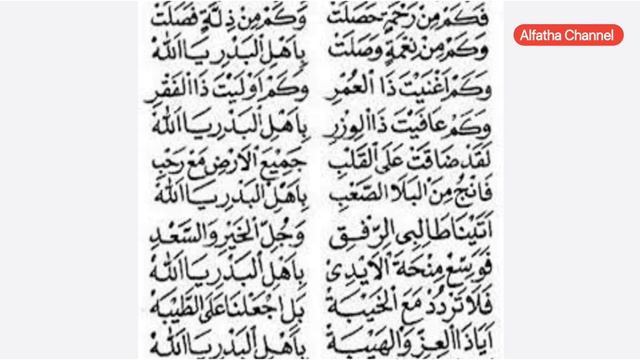 فَكَمْ مِنْ رَحْمَةٍ حَصَلَتْ وَكَمْ مِنْ ذِلَّةٍ فَصَلَتْ
وَكَمْ مِنْ نِعْمَةٍ وَصَلَتْ بِاَهْلِ الْبَدْرِ يَا اَللهُ
وَكَمْ اَغْنَيْتَ ذَا الْعُمْرِ وَكَمْ اَوْلَيْتَ ذَا الْفَقْرِ
وَكَمْ عَافَيْتَ ذَا الْوِزْرِ بِاَهْلِ الْبَدْرِ يَا اَللهُ
لَقَدْ ضَاقَتْ عَلَى الْقَلْبِ جَمِيْعُ الْاَرْضِ مَعْ رَحْبِ
فَانْجُ مِنَ الْبَلَا الصَّعْبِ بِاَهْلِ الْبَدْرِ يَا اَللهُ
اَتَيْنَا طَالِبِى الرِّفْقِ وَجُلِّ الْخَيْرِ وَالسَّعْدِ
فَوَسِّعْ مِنْحَةَ الْاَيْدِى بِاَهْلِ الْبَدْرِ يَا اَللهُ
فَلَا تَرْدُدْ مَعَ الْخَيْبَةْ بَلِ اجْعَلْنَا عَلَى الطَّيْبَهْ
اَيَا ذَا الْعِزِّ وَالْهَيْبَةْ بِاَهْلِ الْبَدْرِ يَا اَللهُ
Alfatha Channel